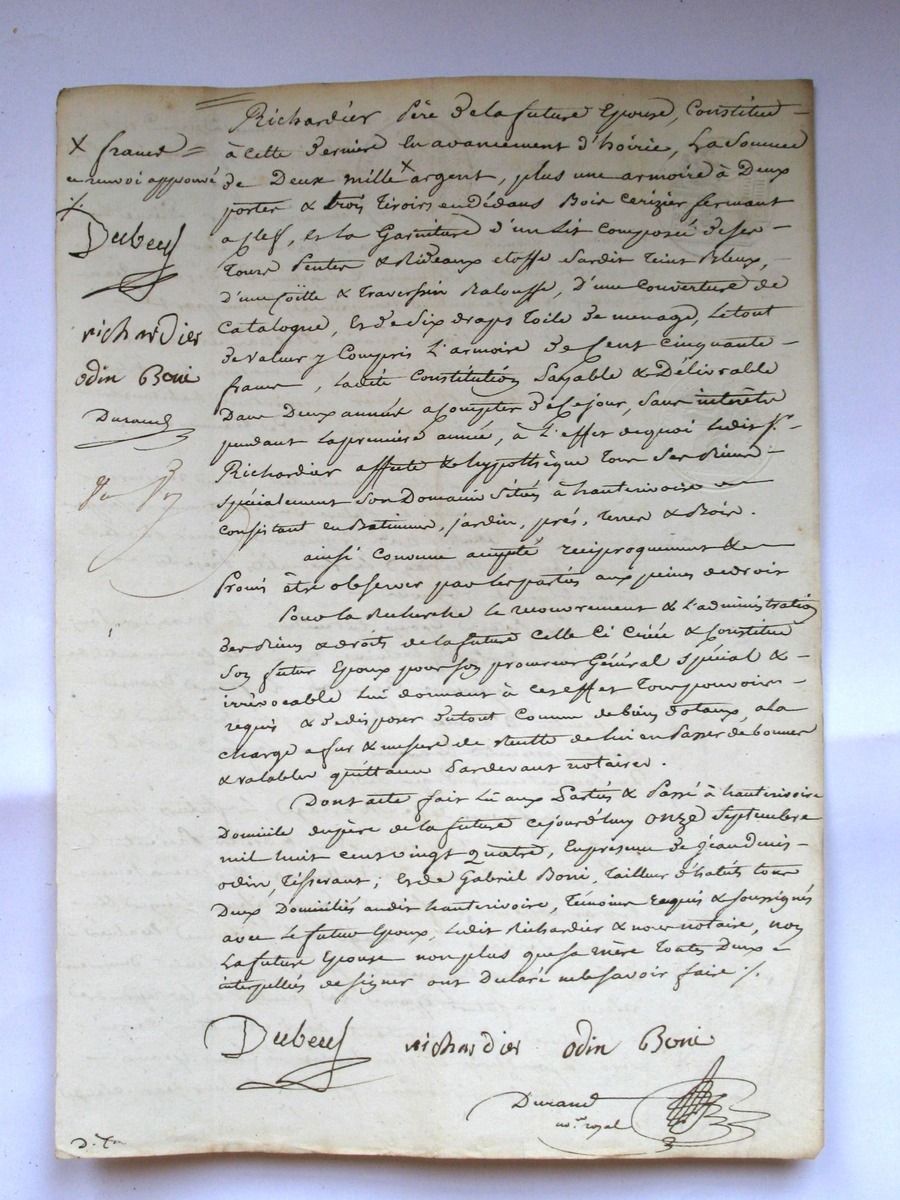 Richardier Père de la future Epouse, Constitue
à cette derniere en avancement d'hoirie, La Somme
de Deux mille x argent, plus une armoire à Deux
portes & trois tiroirs endédans Bois Cerizier fermant
a clef, et la Garniture d'un Lit Composée de ses
Tours Pentes & Rideaux etoffe Sardit teint Bleux,
d'une Coëtte & Traversin Balouffe, d'une Couverture de
Catalogne, et de Six draps toile de menage, Le tout
de valeur y Compris L'armoire de Cent Cinquante
francs, Ladite Constitution Payable & Délivrable
Dans Deux années a Compter de Ce jour, Sans intérêts
pendant La première année, à L'effet de quoi Ledit Sr.
Richardier affecte & hypothèque tous Ses Biens
Spécialement Son Domaine Situé à hauterivoire
Consistant en Batimens, jardin, prés, terres & Bois.
ainsi Convenu accepté réciproquement &
Promis être observer par les parties aux peines de droit
Pour la Recherche Le recouvrement & L'administration
des Biens & droits de la future Celle Ci Créée & Constitue
Son futur Epoux pour Son procureur Général Spécial &
irrévocable Lui donnant à cet effet tous pouvoirs
requis & de disposer du tout Comme de biens dotaux, a la
charge a fur & mesure de Recette de lui en Passer de bonnes
& valables quittances Pardevant notaires.
Dont acte fait Lû aux Parties & Passé à hauterivoire
Domicile du père de la future cejourd'huy onze Septembre
mil huit cent vingt quatre, En présence de jean denis
odin, Tisserant; et de Gabriel Boni, Tailleur d'habits tous
Deux Domiciliés audit hauterivoire, Témoins requis & soussignés
avec Le futur Epoux, Ledit Richardier & nous notaire, non
La future Epouse non plus que sa mère Toutes Deux
interpellées de signer ont Déclaré ne le Savoir faire ./.
Dubeuf richardier odin Boni
Durand
no.re royal
x francs
ce renvoi approuvé
./.
Dubeuf
richardier
odin Boni
Durand